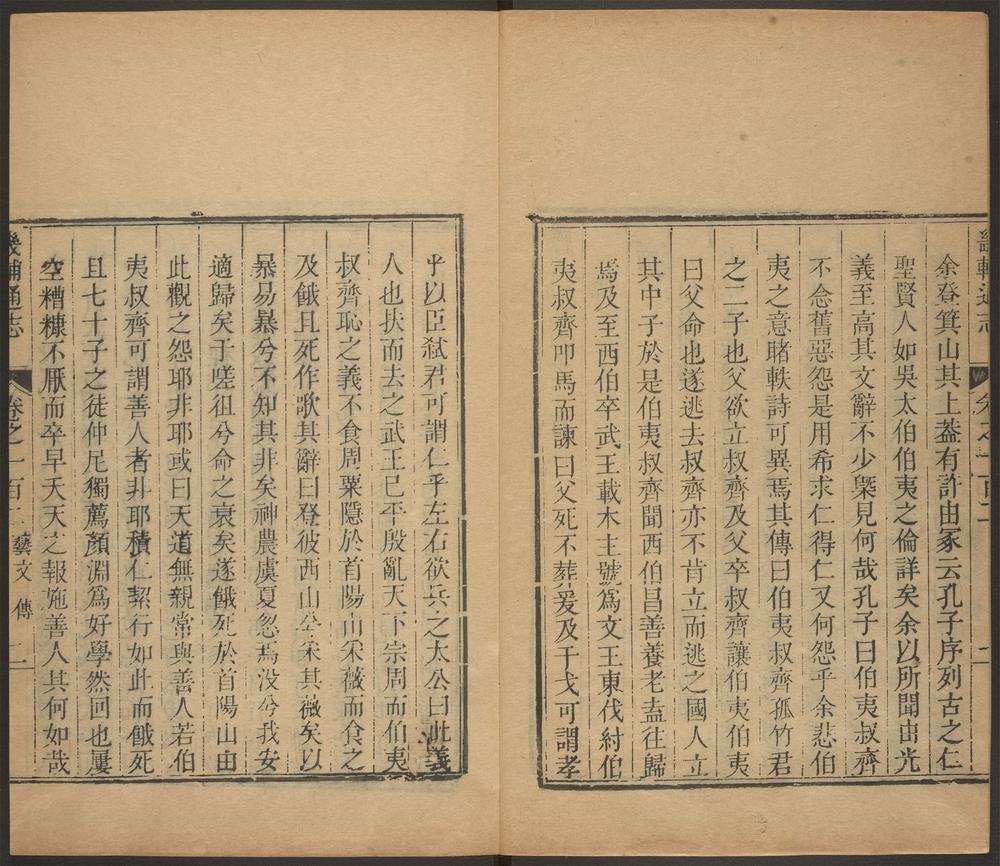 畿輔通志
卷之一百二
二
余登箕山其上葢有許由冢云孔子序列古之仁
聖賢人如吳太伯伯夷之倫詳矣余以所聞由光
義至高其文辭不少槩見何哉孔子曰伯夷叔齊
不念舊惡怨是用希求仁得仁又何怨乎余悲伯
夷之意睹軼詩可異焉其傳曰伯夷叔齊孤竹君
之二子也父欲立叔齊及父卒叔齊讓伯夷伯夷
曰父命也遂逃去叔齊亦不肯立而逃之國人立
其中子於是伯夷叔齊聞西伯昌善養老盍往歸
焉及至西伯卒武王載木主號爲文王東伐紂伯
夷叔齊叩馬而諫曰父死不葬爰及干戈可謂孝
乎以臣弑君可謂仁乎左右欲兵之太公曰此義
人也扶而去之武王已平殷亂天下宗周而伯夷
叔齊恥之義不食周粟隱於首陽山采薇而食之
及餓且死作歌其辭曰登彼西山兮采其薇矣以
暴易暴兮不知其非矣神農虞夏忽焉没兮我安
適歸矣于嗟徂兮命之衰矣遂餓死於首陽山由
此觀之怨耶非耶或曰天道無親常與善人若伯
夷叔齊可謂善人者非耶積仁絜行如此而餓死
且七十子之徒仲尼獨薦顏淵爲好學然回也屢
空糟糠不厭而卒早夭天之報施善人其何如哉
畿輔通志
卷之一百二 藝文 傳 二